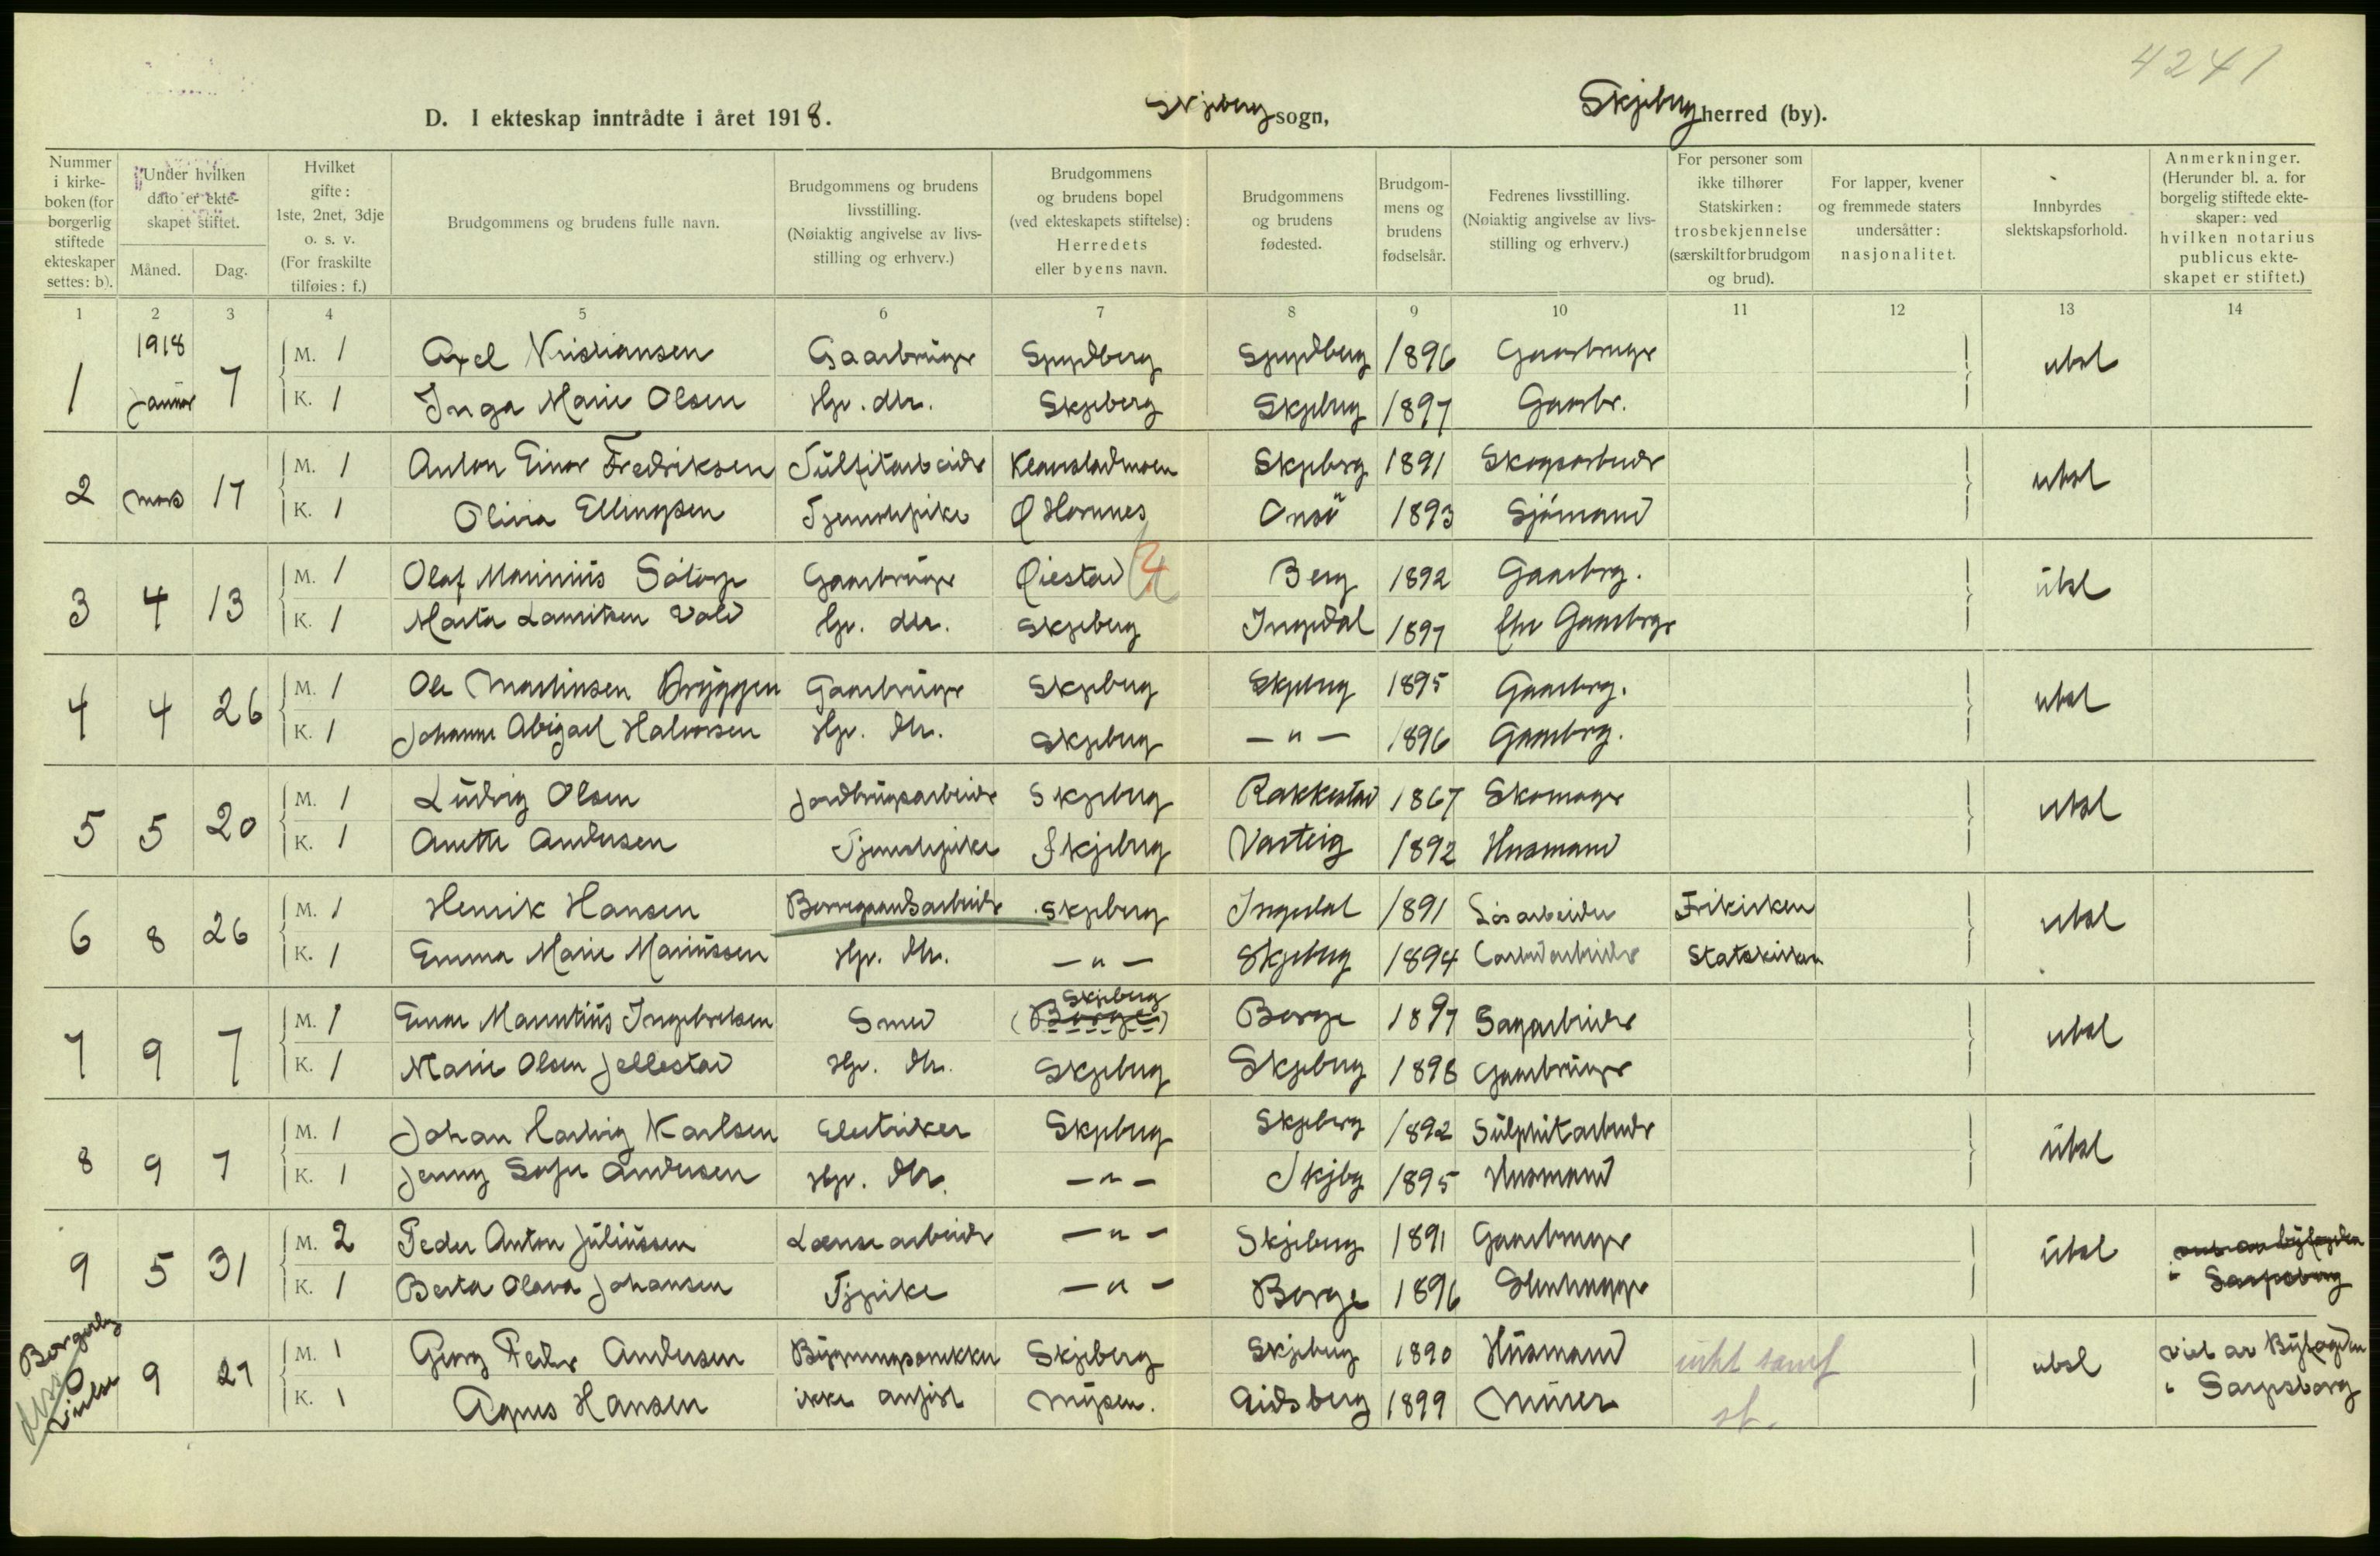 4241
D. I ekteskap inntrådte i året 1918. Skjeberg sogn, Skjeberg herred (by).
Nummer i kirke-boken (for borgerlig stiftede ekteskaper settes: b).
Under hvilken dato er ekte-skapet stiftet.
Måned. Dag.
Hvilket gifte: 1ste, 2net, 3dje o. s. v. (For fraskilte tilføies: f.)
Brudgommens og brudens fulle navn.
Brudgommens og brudens livsstilling. (Nøiaktig angivelse av livs-stilling og erhverv.)
Brudgommens og brudens bopel (ved ekteskapets stiftelse): Herredets eller byens navn.
Brudgommens og brudens fødested.
Brudgom-mens og brudens fødselsår.
Fedrenes livsstilling. (Nøiaktig angivelse av livs-stilling og erhverv.)
For personer som ikke tilhører Statskirken: trosbekjennelse (særskilt for brudgom og brud).
For lapper, kvener og fremmede staters undersåtter: nasjonalitet.
Innbyrdes slektskapsforhold.
Anmerkninger. (Herunder bl. a. for borgelig stiftede ekte-skaper: ved hvilken notarius publicus ekte-skapet er stiftet.)
1 2 3 4 5 6 7 8 9 10 11 12 13 14
1918
1 Januar 7 M. 1 Axel Kristiansen Gaarbruger Spydberg Spydberg 1896 Gaarbruger ubsl
K. 1 Inga Marie Olsen Hjv. dtr. Skjeberg Skjeberg 1897 Gaarbr.
2 mars 17 M. 1 Anton Einar Fredriksen Sulfitarbeider Klavestadmoen Skjeberg 1891 Skogsarbeider ubsl
K. 1 Olivia Ellingsen Tjenestepike Ø Hornnes Onsö 1893 Sjömand
3 4 13 M. 1 Olaf Marinius Sötorp Gaarbruger Øiestad Berg 1892 Gaarbrg. ubsl
K. 1 Marta Lauritsen Vold Hjv. dtr. Skjeberg Ingedal 1897 fhv Gaarbrgr
4 4 26 M. 1 Ole Martinsen Bryggen Gaarbruger Skjeberg Skjeberg 1895 Gaarbrg. ubsl
K. 1 Johanne Abigael Halvorsen Hjv. dtr. Skjeberg — " — 1896 Gaarbrg.
5 5 20 M. 1 Ludvig Olsen Jordbrugsarbeider Skjeberg Rakkestad 1867 Skomager ubsl
K. 1 Anette Andersen Tjenestepike Skjeberg Varteig 1892 Husmand
6 8 26 M. 1 Henrik Hansen Borregaardsarbeider Skjeberg Ingedal 1891 Løsarbeider Frikirken ubsl
K. 1 Emma Marie Mariussen Hjv. dtr. — " — Skjeberg 1894 Carbidarbeider Statskirken
7 9 7 M. 1 Einar Mauritius Ingebretsen Smed Skjeberg (Borge) Borge 1897 Sagarbeider ubsl
K. 1 Marie Olsen Jellestad Hjv. dtr. Skjeberg Skjeberg 1898 Gaarbruger
8 9 7 M. 1 Johan Hartvig Karlsen Elektriker Skjeberg Skjeberg 1892 Sulphitarbeider ubsl
K. 1 Jenny Sofie Andersen Hjv. dtr. — " — Skjbg 1895 Husmand
9 5 31 M. 2 Peder Anton Juliussen Lænsearbeider — " — Skjeberg 1891 Gaarbruger ubsl
K. 1 Berta Olava Johansen Tjpike — " — Borge 1896 Stenhugger i Sarpsborg
Borgerlig vielse 9 27 M. 1 Georg Peder Andersen Bygningssnekker Skjeberg Skjeberg 1890 Husmand ubsl viet av Byfogden
K. 1 Agnes Hansen ikke anført Mysen. Eidsberg 1899 Murer st. i Sarpsborg